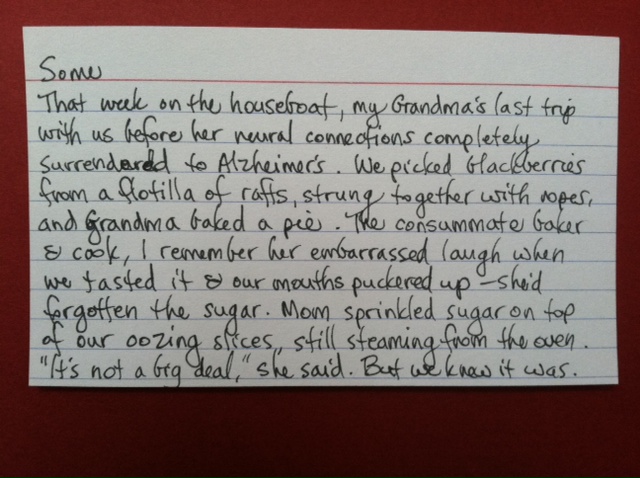 Some
That week on the houseboat, my Grandma's last trip
with us before her neural connections completely
surrendered to Alzheimer's. We picked blackberries
from a flotilla of rafts, strung together with ropes,
and Grandma baked a pie. The consummate baker
& cook, I remember her embarrassed laugh when
we tasted it & our mouths puckered up - she'd
forgotten the sugar. Mom sprinkled sugar on top
of our oozing slices, still steaming from the oven.
"It's not a big deal," she said. But we knew it was.